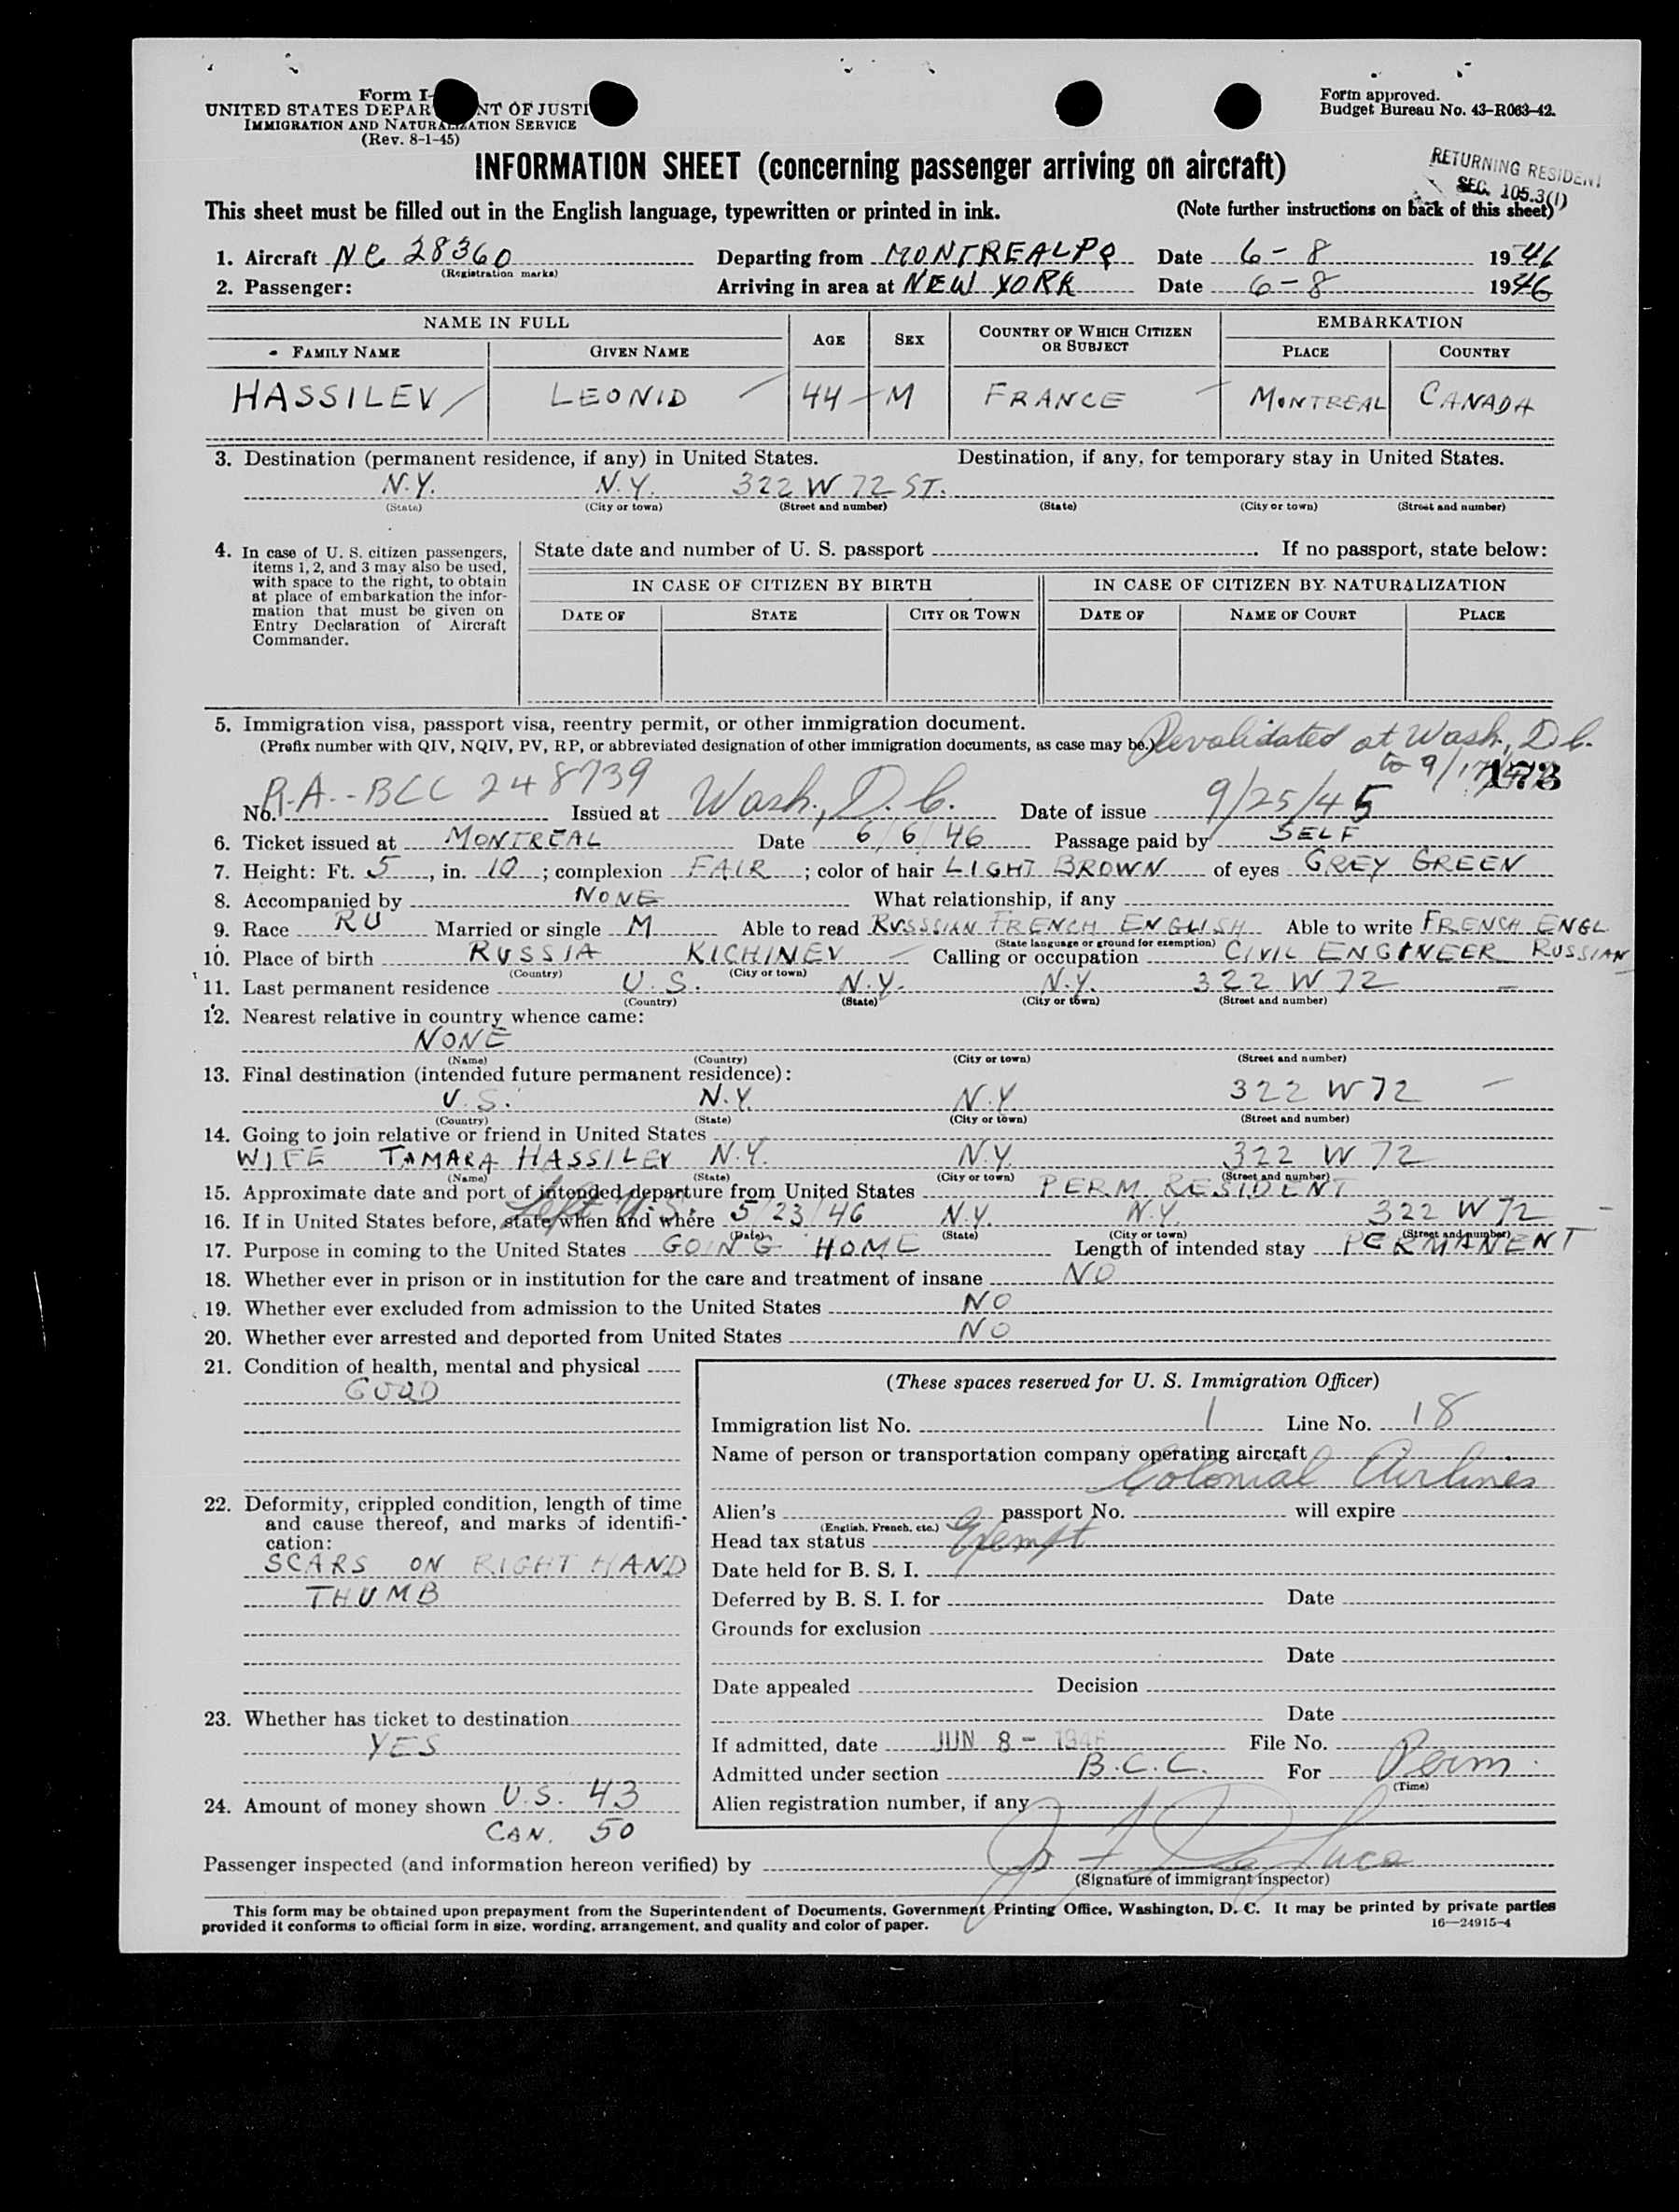 Form I-
UNITED STATES DEPAR NT OF JUSTI
IMMIGRATION AND NATURALIZATION SERVICE
(Rev. 8-1-45)
Form approved.
Budget Bureau No. 43-R063-42.
INFORMATION SHEET (concerning passenger arriving on aircraft)
RETURNING RESIDENT
SEC. 105.3(1)
This sheet must be filled out in the English language, typewritten or printed in ink. (Note further instructions on back of this sheet)
1. Aircraft NC 28360 Departing from MONTREAL PQ Date 6-8 1946
(Registration marks)
2. Passenger: Arriving in area at NEW YORK Date 6-8 1946
NAME IN FULL AGE SEX COUNTRY OF WHICH CITIZEN OR SUBJECT EMBARKATION
FAMILY NAME GIVEN NAME PLACE COUNTRY
HASSILEV LEONID 44 M FRANCE MONTREAL CANADA
3. Destination (permanent residence, if any) in United States. Destination, if any, for temporary stay in United States.
N.Y. N.Y. 322 W 72 ST.
(State) (City or town) (Street and number) (State) (City or town) (Street and number)
4. In case of U. S. citizen passengers,
items 1, 2, and 3 may also be used,
with space to the right, to obtain
at place of embarkation the infor-
mation that must be given on
Entry Declaration of Aircraft
Commander.
State date and number of U. S. passport . If no passport, state below:
IN CASE OF CITIZEN BY BIRTH IN CASE OF CITIZEN BY NATURALIZATION
DATE OF STATE CITY OR TOWN DATE OF NAME OF COURT PLACE
5. Immigration visa, passport visa, reentry permit, or other immigration document.
(Prefix number with QIV, NQIV, PV, RP, or abbreviated designation of other immigration documents, as case may be.) Revalidated at Wash., D.C.
to 9/17/
173
No. R.A.-BCC 248739 Issued at Wash., D.C. Date of issue 9/25/45
6. Ticket issued at MONTREAL Date 6/6/46 Passage paid by SELF
7. Height: Ft. 5, in. 10; complexion FAIR; color of hair LIGHT BROWN of eyes GREY GREEN
8. Accompanied by NONE What relationship, if any
9. Race RU Married or single M Able to read RUSSSIAN FRENCH ENGLISH Able to write FRENCH ENGL
(State language or ground for exemption)
10. Place of birth RUSSIA KICHINEV Calling or occupation CIVIL ENGINEER RUSSIAN
(Country) (City or town)
11. Last permanent residence U.S. N.Y. N.Y. 322 W 72
(Country) (State) (City or town) (Street and number)
12. Nearest relative in country whence came:
NONE
(Name) (Country) (City or town) (Street and number)
13. Final destination (intended future permanent residence):
U.S. N.Y. N.Y 322 W 72
(Country) (State) (City or town) (Street and number)
14. Going to join relative or friend in United States
WIFE TAMARA HASSILEV N.Y. N.Y. 322 W 72
(Name) (State) (City or town) (Street and number)
15. Approximate date and port of intended departure from United States PERM. RESIDENT
Left U.S.
16. If in United States before, state when and where 5/23/46 N.Y. N.Y. 322 W 72
(Date) (State) (City or town) (Street and number)
17. Purpose in coming to the United States GOING HOME Length of intended stay PERMANENT
18. Whether ever in prison or in institution for the care and treatment of insane NO
19. Whether ever excluded from admission to the United States NO
20. Whether ever arrested and deported from United States NO
21. Condition of health, mental and physical
GOOD
22. Deformity, crippled condition, length of time
and cause thereof, and marks of identifi-
cation:
SCARS ON RIGHT HAND
THUMB
23. Whether has ticket to destination
YES
24. Amount of money shown U.S. 43
CAN. 50
(These spaces reserved for U. S. Immigration Officer)
Immigration list No. 1 Line No. 18
Name of person or transportation company operating aircraft
Colonial Airlines
Alien's passport No. will expire
(English, French, etc.)
Head tax status Exempt
Date held for B. S. I.
Deferred by B. S. I. for Date
Grounds for exclusion
Date
Date appealed Decision
Date
If admitted, date JUN 8 - 1946 File No.
Admitted under section B.C.C. For Perm.
(Time)
Alien registration number, if any
Passenger inspected (and information hereon verified) by
(Signature of immigrant inspector)
This form may be obtained upon prepayment from the Superintendent of Documents, Government Printing Office, Washington, D. C. It may be printed by private parties
provided it conforms to official form in size, wording, arrangement, and quality and color of paper. 16—24915-4